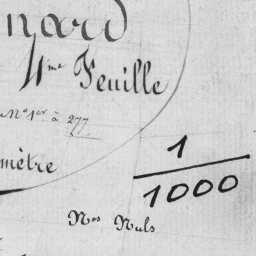 nard
4me Feuille
Nos 1er à 277
mètre
1
1000
Nos Nuls